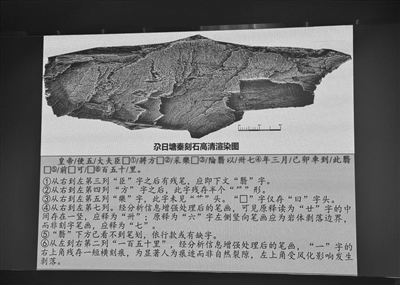 尕日塘秦刻石高清渲染图
皇帝/使五/大夫臣□①/將方□②/采樂□③/陯翳以/卅七④年三月/己卯車到/此翳
□⑤/前□可/□⑥百五十/里。
①从右到左第三列“臣”字之后有残笔，应即下文“翳”字。
②从右到左第四列“方”字之后，此字残存半个“”形。
③从右到左第五列“樂”字，此字未见“艹”头。“□”字仅存“曰”字头。
④从右到左第七列，经分析信息增强处理后的笔画，可见原释读为“廿”字的中
间存在一竖，应释为“卅”；原释为“六”字左侧竖向笔画应为岩体剥落边界，
而非刻字笔画，应释为“七”。
⑤“翳”下方已看不到笔划，依行款或有缺字。
⑥从左到右第二列“一百五十里”，经分析信息增强处理后的笔画，“一”字的
右上角残存一短横刻痕，为显著人为痕迹而非自然裂隙，左上角受风化影响发生
剥落。